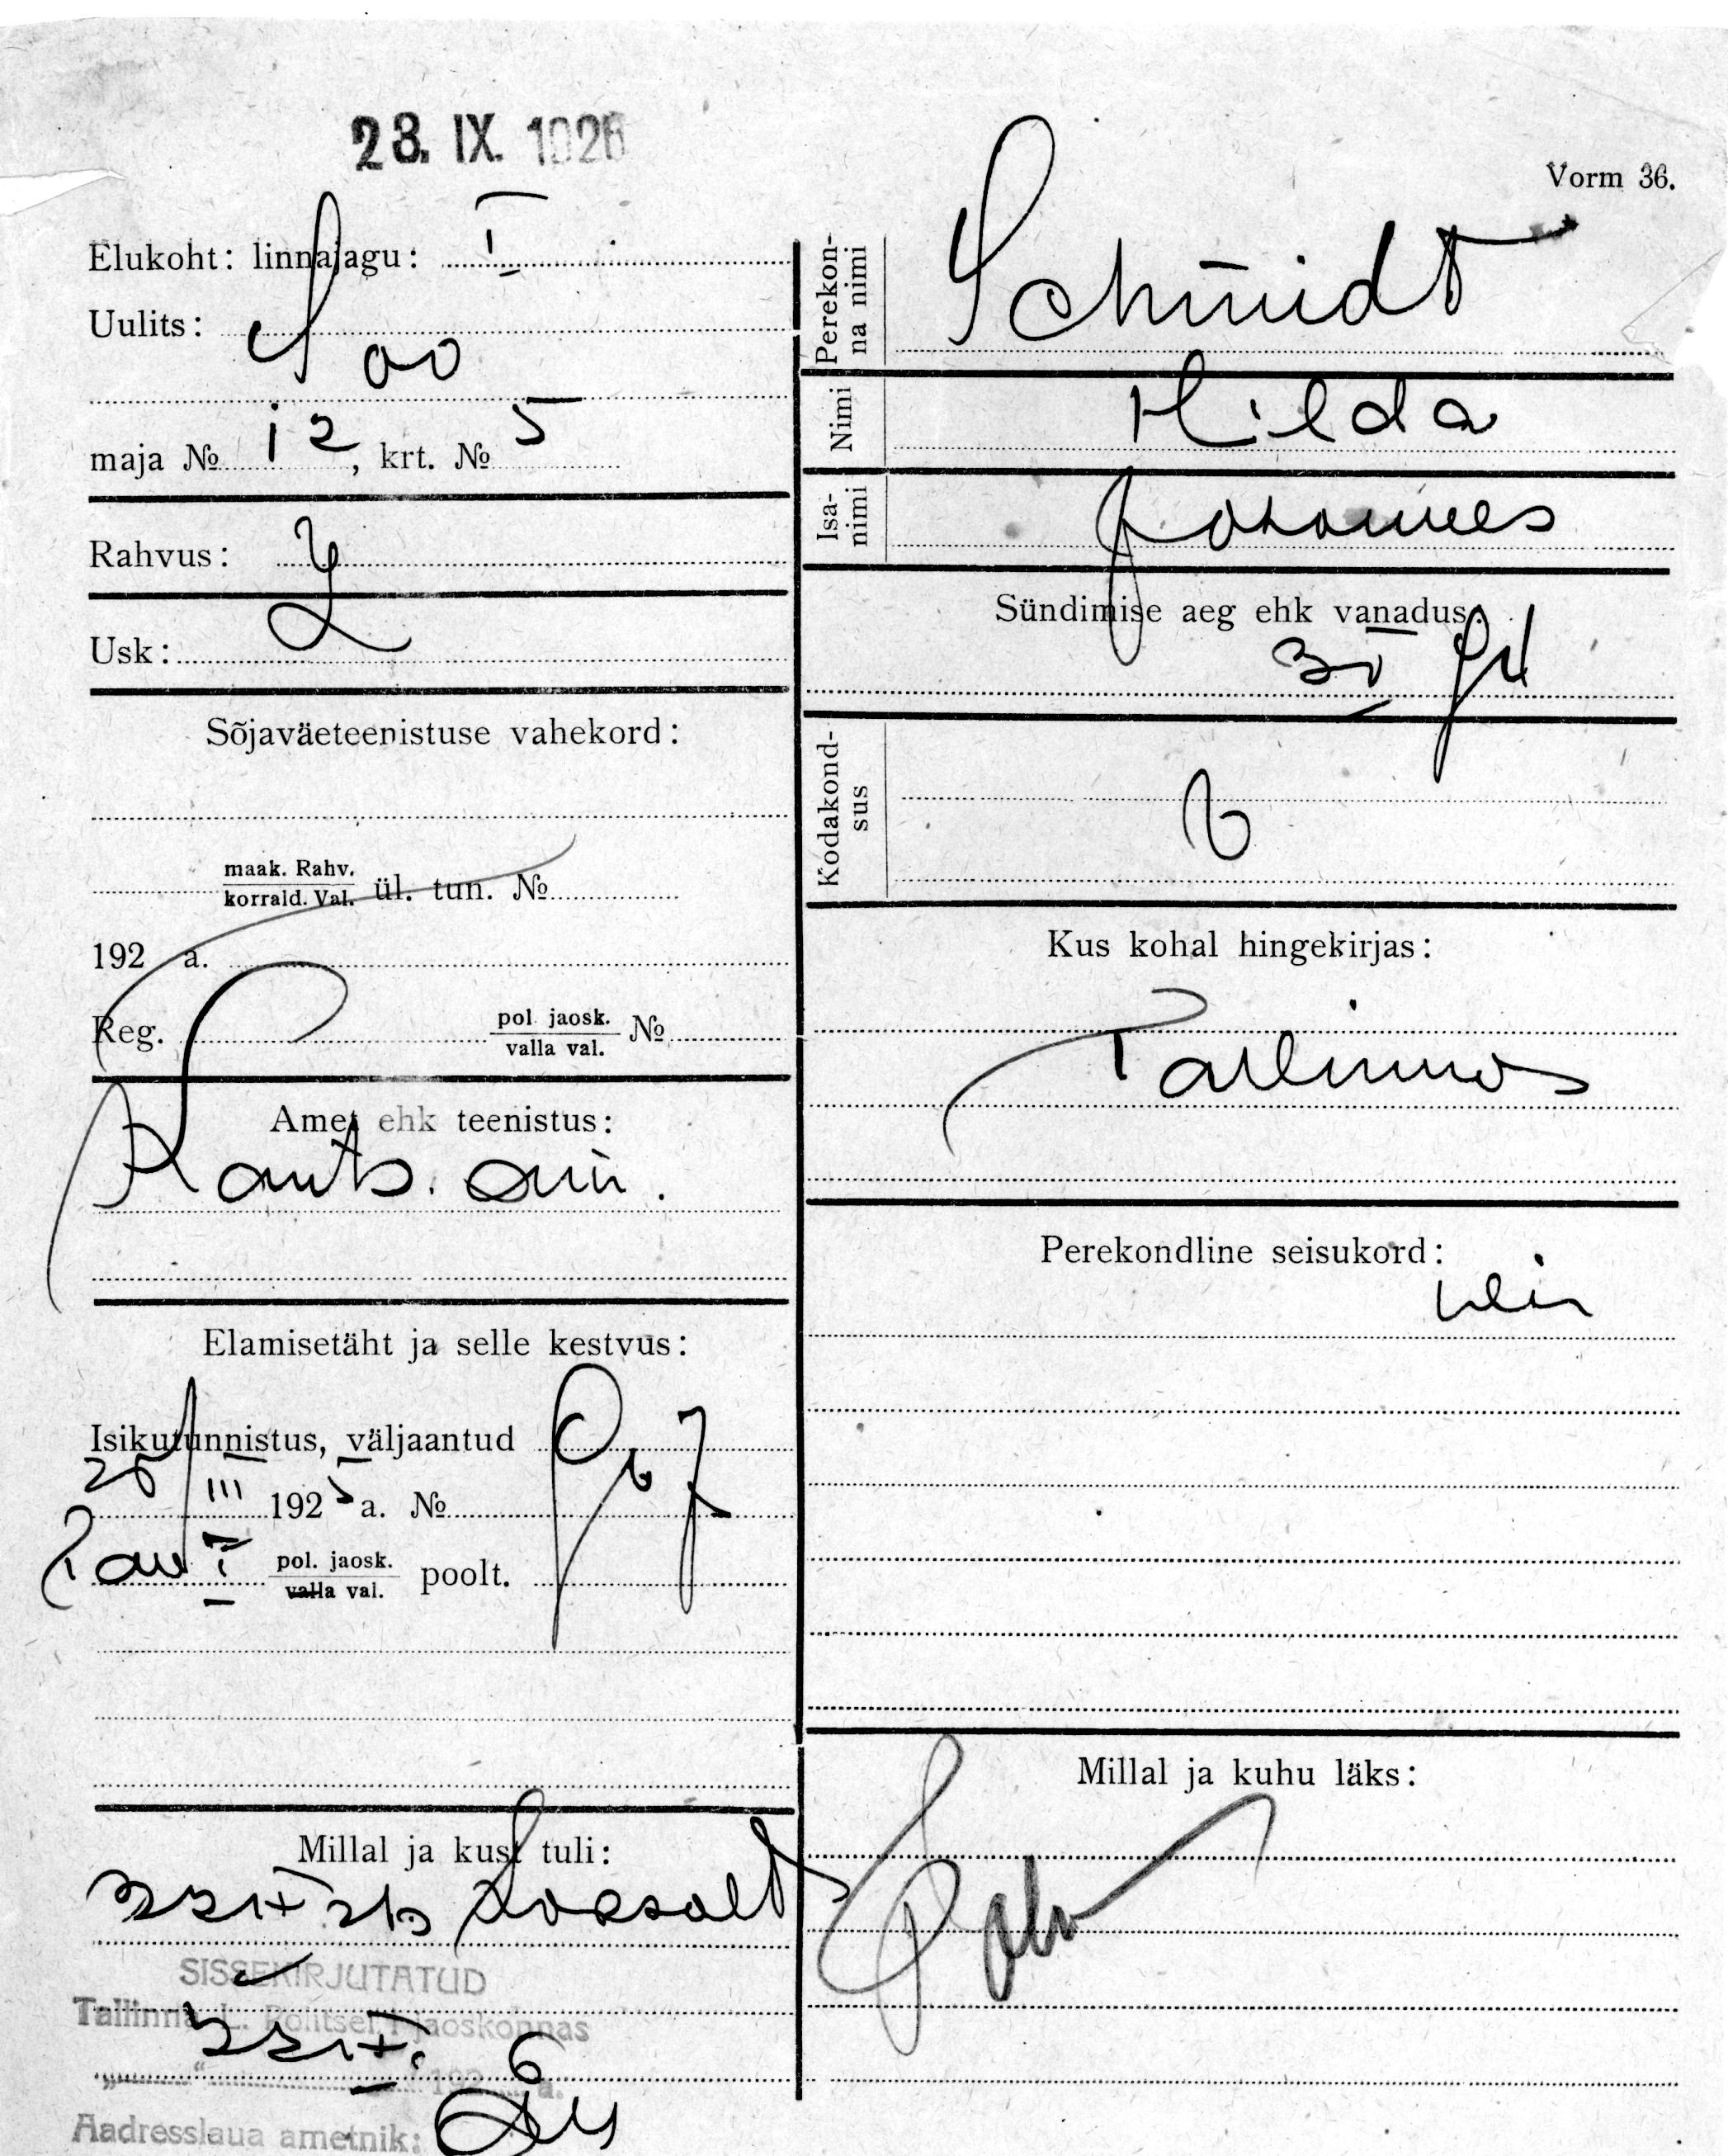 23. IX. 1926
Vorm 36.
Elukoht: linnajagu: I
Uulits: Soo
maja № 12, krt. № 5
Rahvus:
Usk: L
Sõjaväeteenistuse vahekord:
maak. Rahv.
korrald. Val. ül. tun. №
192 a.
Reg. pol. jaosk.
valla val. №
Amet ehk teenistus:
Kants. am.
Elamisetäht ja selle kestvus:
Isikutunnistus, väljaantud
III 1925 a. №
I pol. jaosk.
valla val. poolt.
Millal ja kust tuli:
Loksalt
SISSEKIRJUTATUD
Tallinna L. Politsei I jaoskonnas
„ “ 1926 a.
Aadresslaua ametnik:
Perekonna nimi Schmidt
Nimi Hilda
Isanimi Johannes
Sündimise aeg ehk vanadus:
Kodakondsus
Kus kohal hingekirjas:
Tallinnas
Perekondline seisukord:
Millal ja kuhu läks: